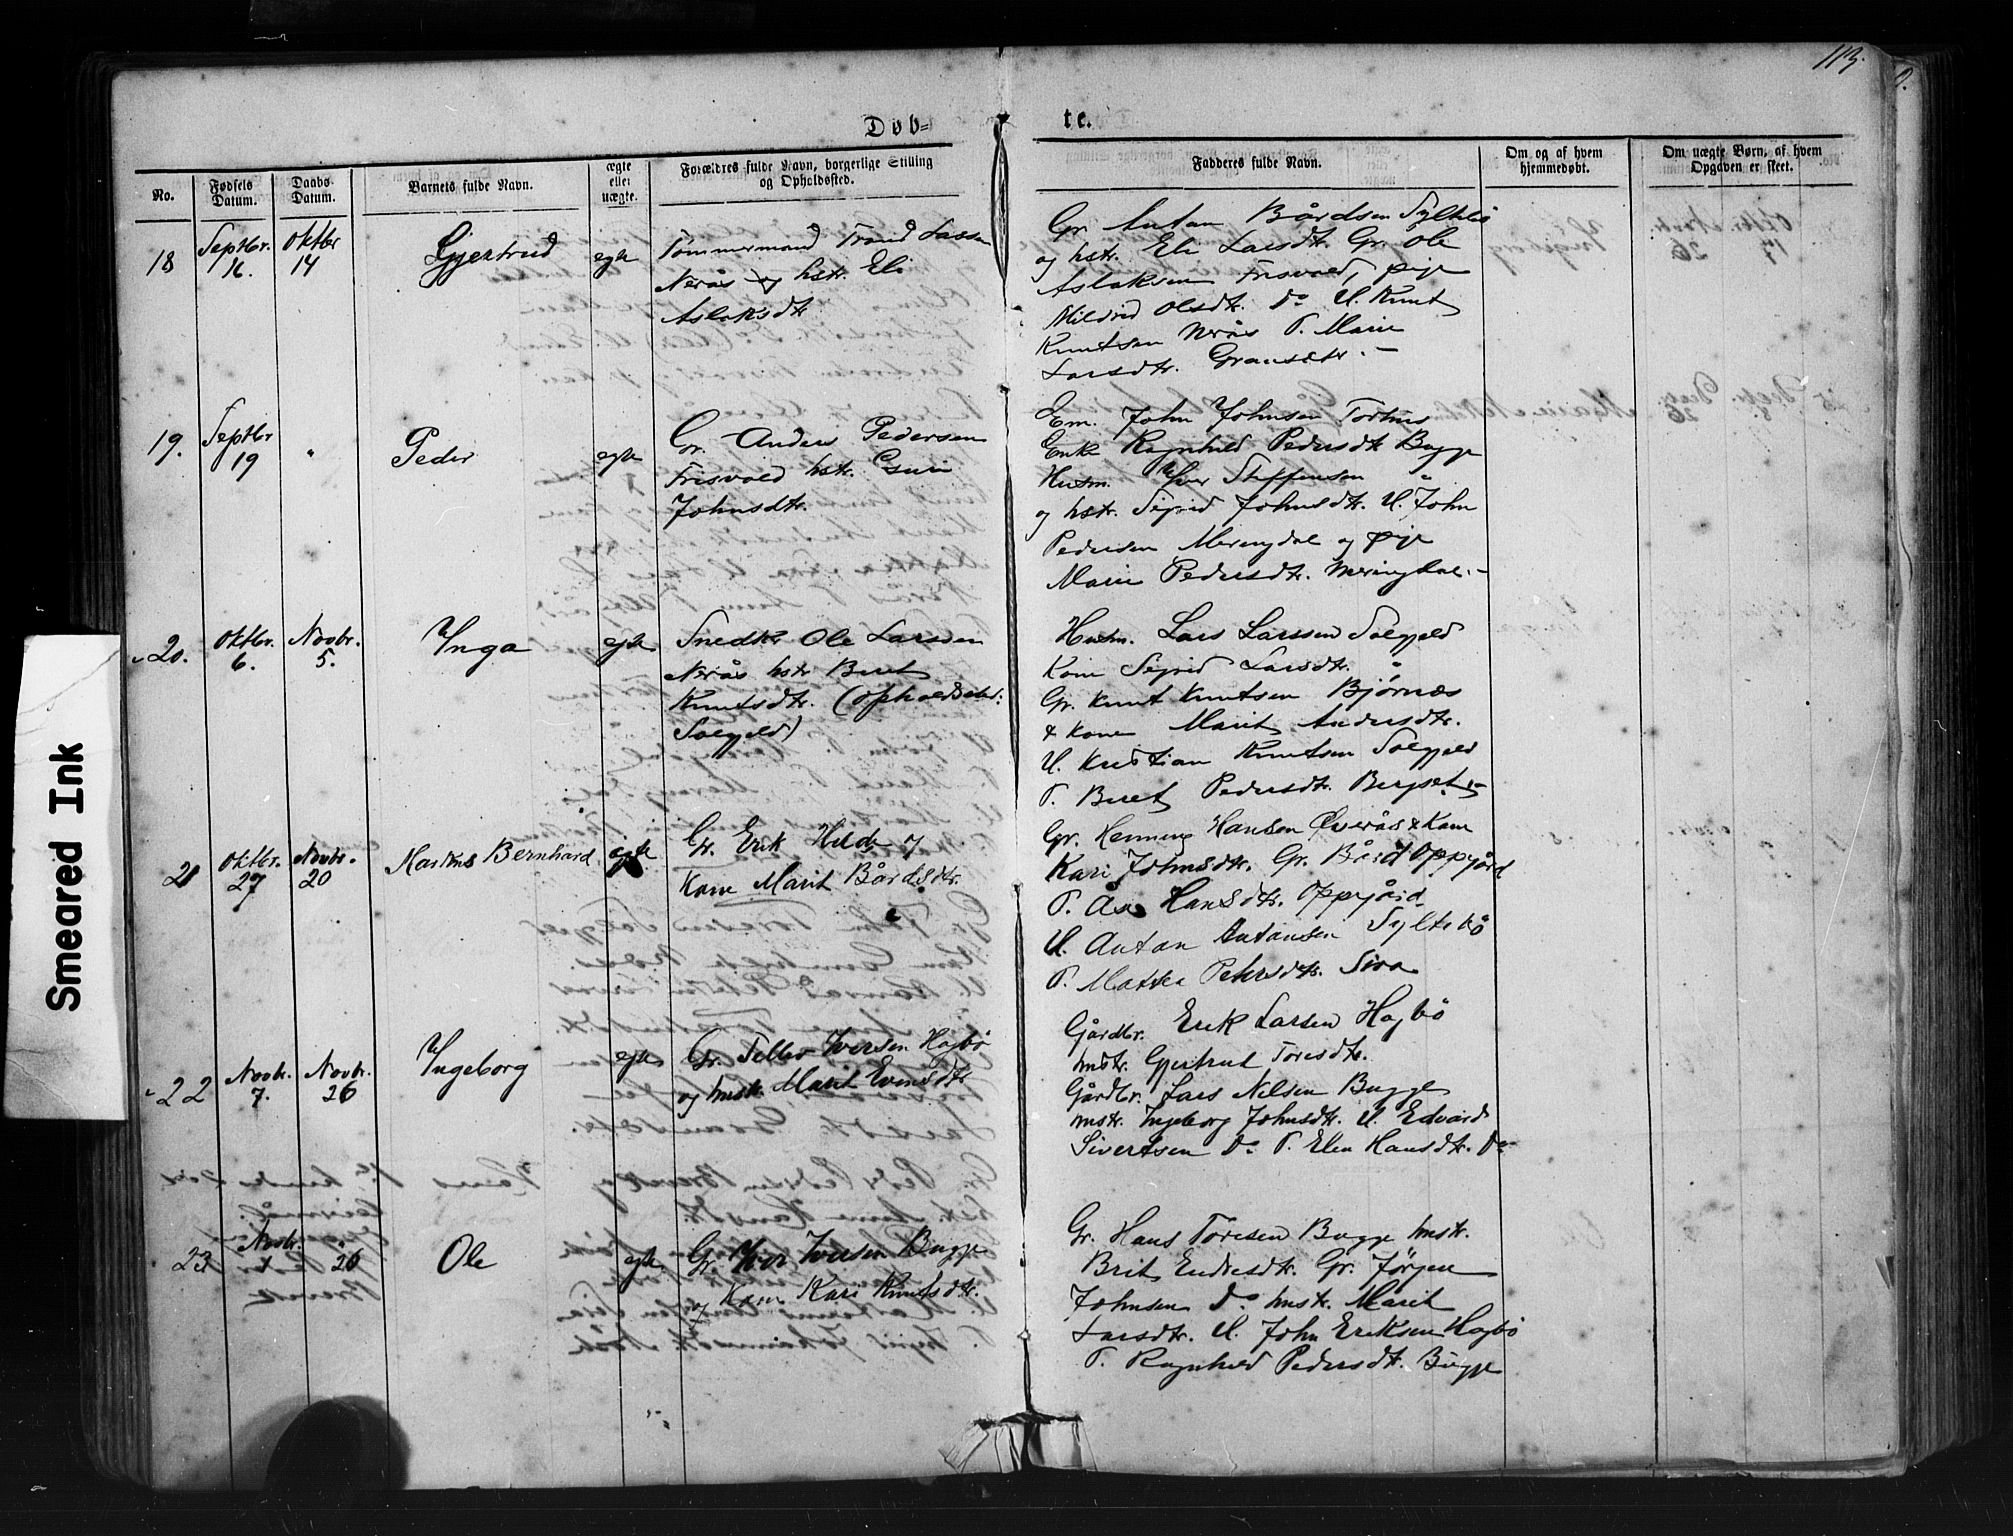 113.
Døb-
te.
No.
Fødsels Datum.
Daabs Datum.
Barnets fulde Navn.
ægte eller uægte.
Forældres fulde Navn, borgerlige Stilling og Opholdssted.
Fadderes fulde Navn.
Om og af hvem hjemmedøbt.
Om uægte Børn, af hvem Opgaven er skeet.
18
Septbr. 16.
Oktbr 14
Gjertrud
egte
Tømmermand Trond Larssen
Nerås og hstr. Eli
Aslaksdtr
Gr. Antan Bårdsen Syltebø
og hstr. Eli Larsdtr. Gr. Ole
Aslaksen Frisvold, pige
Mildrid Olsdtr. Do U. Knut
Knutsen Nerås P. Marie
Larsdtr. Gransetr. –
19.
Septbr 19
"
Peder
egte
Gr. Anders Pedersen
Frisvold hstr. Guri
Johnsdtr.
Em. John Johnsen Torhus
Enke Ragnhild Pedersdtr Bugge
Husm. Iver Steffensen
og hstr. Sigrid Johnsdtr. U. John
Pedersen Meringdal og pige
Marie Pedersdtr. Meringdal. –
20.
Oktbr. 6.
Novbr. 5.
Inga
egte
Snedker Ole Larsen
Nerås hstr Beret
Knutsdtr. (Opholdssted:
Solgjeld)
Husm. Lars Larssen Solgjeld
Kone Sigrid Larsdtr.
Gr. Knut Knutsen Bjørnås
& Kone Marit Andersdtr.
U. Kristian Knutsen Solgjeld
P. Beret Pedersdtr. Bergset. –
21
Oktbr. 27
Novbr. 20
Markus Bernhard
egte
Gr. Erik Hilde og
Kone Marit Bårdsdtr.
Gr. Henning Hansen Øverås & Kone
Kari Johnsdtr. Gr. Bård Oppgård
P. Åse Hansdtr. Oppgård
U. Antan Antansen Syltebø
P. Petersdtr. Sira
22
Novbr. 7.
Novbr. 26
Ingeborg
egte
Gr. Tellev Iversen Hagbø
og hustr. Marit Evensdtr
Gårdbr. Erik Larsen Hagbø
hustr. Gjertrud Toresdtr.
Gårdbr. Lars Nilsen Bugge
hustr. Ingeborg Johnsdtr. U. Edvard
Sivertsen Do P. Elen Hansdtr. Do
23
Novbr. 1
" 26
Ole
egte
Gr. Iver Iversen Bugge
og Kone Kari Knutsdtr.
Gr. Hans Toresen Bugge hustr.
Brit Endresdtr. Gr. Jørgen
Johnsen Do hustr. Marit
Larsdtr. U. John Eriksen Hagbø
P. Ragnhild Pedersdtr. Bugge
Smeared Ink